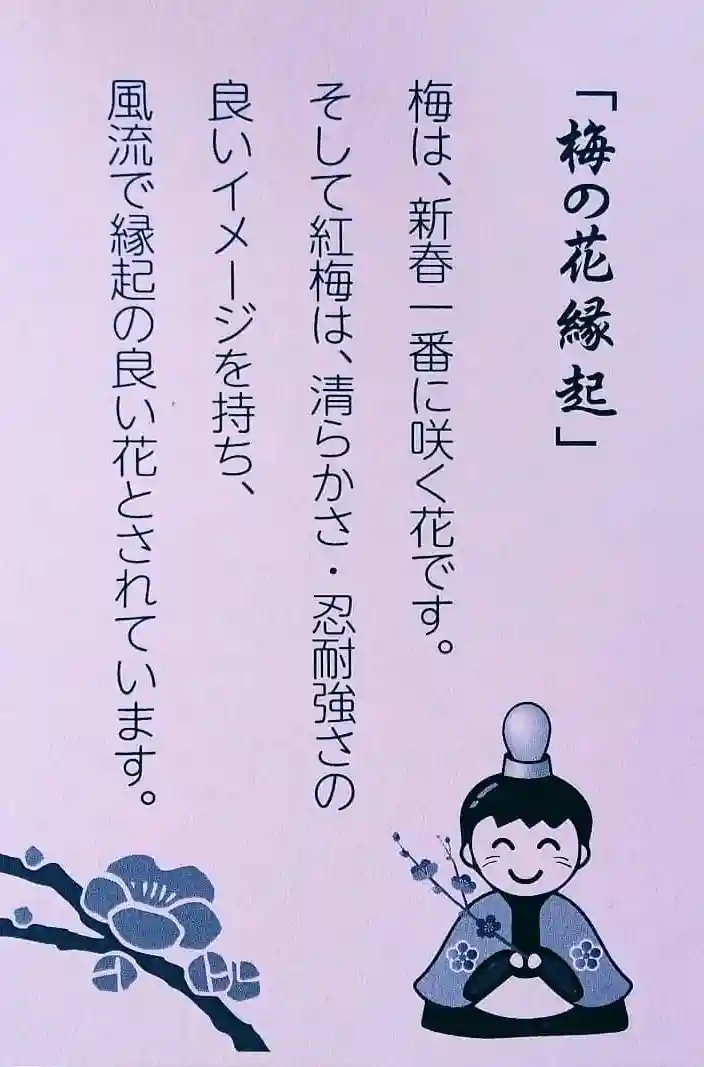 「梅の花縁起」
梅は、新春一番に咲く花です。
そして紅梅は、清らかさ・忍耐強さの
良いイメージを持ち、
風流で縁起の良い花とされています。